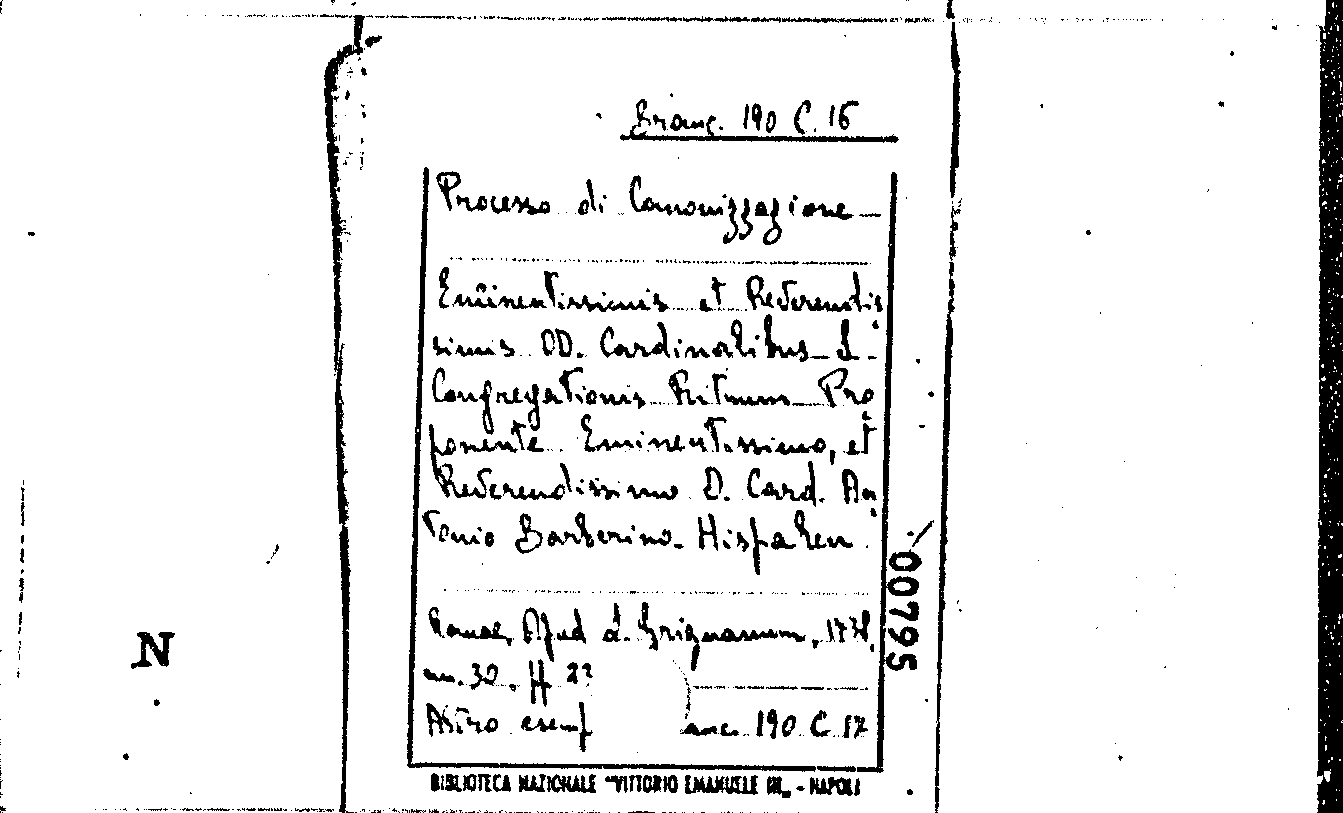 Branc. 190 C. 16
Processo di Canonizzazione
Eminentissimis et Reverendis
simis DD. Cardinalibus S.
Congregationis Rituum Pro
ponente Eminentissimo, et
Reverendissimo D. Card. An
tonio Barberino. Hispalen.
Romae, Apud Z. Grignanum, 1738.
cm. 30. H
Altro esemp anc. 190 C 17
BIBLIOTECA NAZIONALE "VITTORIO EMANUELE III„ - NAPOLI
00795
N